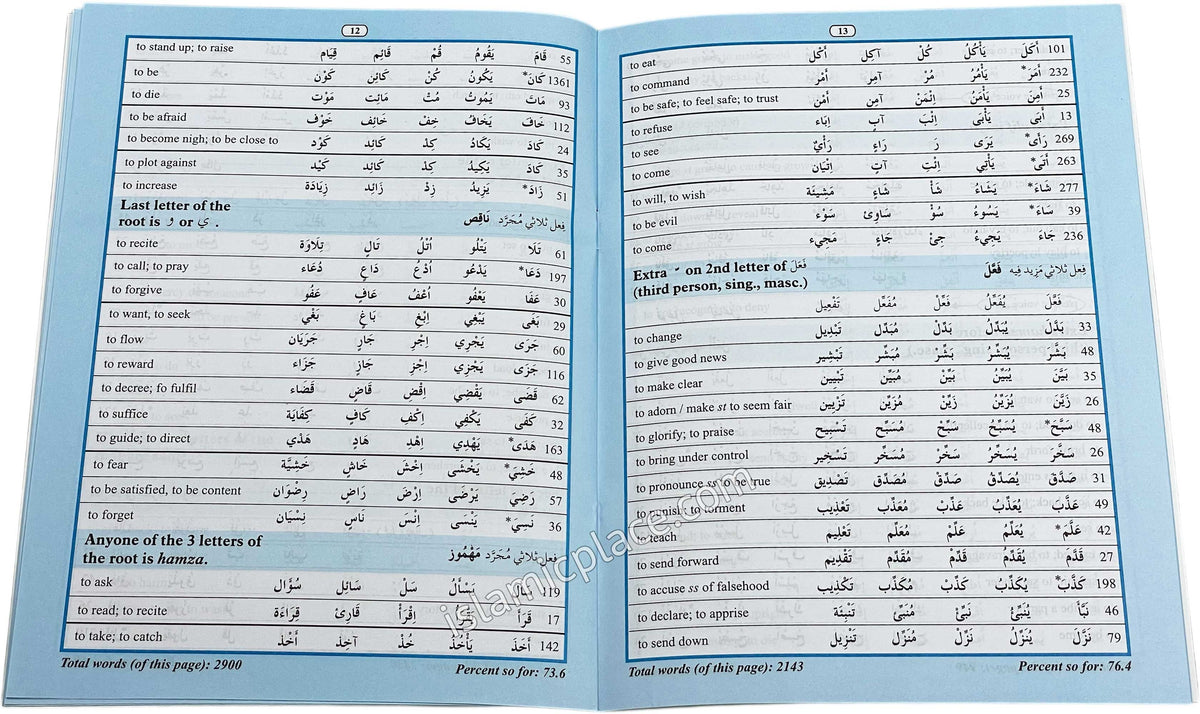 12
to stand up; to raise قِيَام قَائِم قُمْ يَقُومُ قَامَ 55
to be كَوْن كَائِن كُنْ يَكُونُ كَانَ* 1361
to die مَوْت مَائِت مُتْ يَمُوتُ مَاتَ 93
to be afraid خَوْف خَائِف خِفْ يَخَافُ خَافَ 112
to become nigh; to be close to كَوْد كَائِد كِدْ يَكَادُ كَادَ 24
to plot against كَيْد كَائِد كِدْ يَكِيدُ كَادَ 35
to increase زِيَادَة زَائِد زِدْ يَزِيدُ زَادَ* 51
Last letter of the
root is و or ي . فِعل ثلاثي مُجَرَّد نَاقِص
to recite تِلَاوَة تَالٍ اُتْلُ يَتْلُو تَلَا 61
to call; to pray دُعَاء دَاعٍ اُدْعُ يَدْعُو دَعَا* 197
to forgive عَفْو عَافٍ اُعْفُ يَعْفُو عَفَا 30
to want, to seek بَغْي بَاغٍ اِبْغِ يَبْغِي بَغَى 29
to flow جَرَيَان جَارٍ اِجْرِ يَجْرِي جَرَى 60
to reward جَزَاء جَازٍ اِجْزِ يَجْزِي جَزَى 116
to decree; fo fulfil قَضَاء قَاضٍ اِقْضِ يَقْضِي قَضَى 62
to suffice كِفَايَة كَافٍ اِكْفِ يَكْفِي كَفَى 32
to guide; to direct هَدْي هَادٍ اِهْدِ يَهْدِي هَدَى* 163
to fear خَشْيَة خَاشٍ اِخْشَ يَخْشَى خَشِيَ* 48
to be satisfied, to be content رِضْوَان رَاضٍ اِرْضَ يَرْضَى رَضِيَ 57
to forget نِسْيَان نَاسٍ اِنْسَ يَنْسَى نَسِيَ* 36
Anyone of the 3 letters of
the root is hamza. فِعل ثلاثي مُجَرَّد مَهْمُوز
to ask سُؤَال سَائِل سَلْ يَسْأَلُ 119
to read; to recite قِرَاءَة قَارِئ اِقْرَأْ قَرَأَ 17
to take; to catch أَخْذ آخِذ خُذْ يَأْخُذُ أَخَذَ 142
Total words (of this page): 2900 Percent so for: 73.6
13
to eat أَكْل آكِل كُلْ يَأْكُلُ أَكَلَ 101
to command أَمْر آمِر مُرْ يَأْمُرُ أَمَرَ* 232
to be safe; to feel safe; to trust أَمْن آمِن اِئْمَنْ يَأْمَنُ أَمِنَ 25
to refuse إِبَاء آبٍ اِئْبَ يَأْبَى أَبَى 13
to see رَأْيٌ رَاءٍ رَ يَرَى رَأَى* 269
to come اِتْيَان آتٍ اِئْتِ يَأْتِي أَتَى* 263
to will, to wish مَشِيئَة شَاءٍ شَأْ يَشَاءُ شَاءَ* 277
to be evil سَوْء سَاوِئ سُؤْ يَسُوءُ سَاءَ* 39
to come مَجِيء جَاءٍ جِئْ يَجِيءُ جَاءَ 236
Extra ّ on 2nd letter of فَعَلَ
(third person, sing., masc.) فِعل ثلاثي مَزِيد فِيه فَعَّلَ
تَفْعِيل مُفَعِّل فَعِّلْ يُفَعِّلُ فَعَّلَ
to change تَبْدِيل مُبَدِّل بَدِّلْ يُبَدِّلُ بَدَّلَ 33
to give good news تَبْشِير مُبَشِّر بَشِّرْ يُبَشِّرُ بَشَّرَ 48
to make clear تَبْيِين مُبَيِّن بَيِّنْ يُبَيِّنُ بَيَّنَ 35
to adorn / make st to seem fair تَزْيِين مُزَيِّن زَيِّنْ يُزَيِّنُ زَيَّنَ 26
to glorify; to praise تَسْبِيح مُسَبِّح سَبِّحْ يُسَبِّحُ سَبَّحَ* 48
to bring under control تَسْخِير مُسَخِّر سَخِّرْ يُسَخِّرُ سَخَّرَ 26
to pronounce ss to be true تَصْدِيق مُصَدِّق صَدِّقْ يُصَدِّقُ صَدَّقَ 31
to punish; to torment تَعْذِيب مُعَذِّب عَذِّبْ يُعَذِّبُ عَذَّبَ 49
to teach تَعْلِيم مُعَلِّم عَلِّمْ يُعَلِّمُ عَلَّمَ* 42
to send forward تَقْدِيم مُقَدِّم قَدِّمْ يُقَدِّمُ قَدَّمَ 27
to accuse ss of falsehood تَكْذِيب مُكَذِّب كَذِّبْ يُكَذِّبُ كَذَّبَ* 198
to declare; to apprise تَنْبِئَة مُنَبِّئ نَبِّئْ يُنَبِّئُ نَبَّأَ 46
to send down تَنْزِيل مُنَزِّل نَزِّلْ يُنَزِّلُ نَزَّلَ 79
Total words (of this page): 2143 Percent so for: 76.4
islamicplace.com